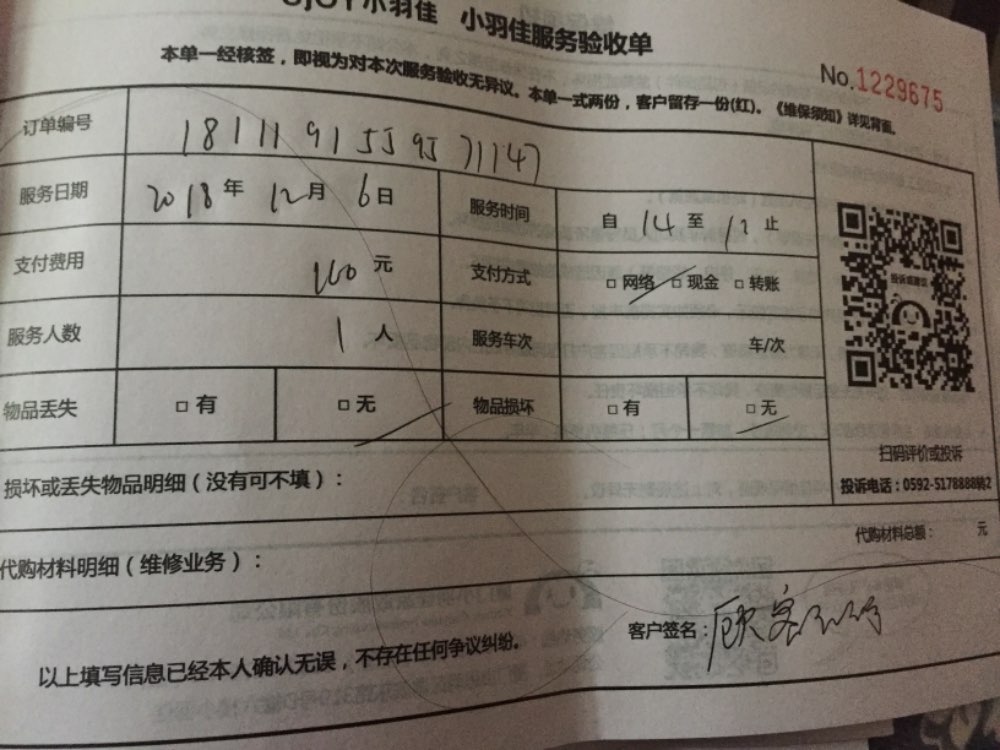 小羽佳 小羽佳服务验收单
本单一经核签，即视为对本次服务验收无异议。本单一式两份，客户留存一份(红)。《维保须知》详见背面。
No.1229675
订单编号 18111915595 71147
服务日期 2018年 12月 6日 服务时间 自 14 至 止
支付费用 160 元 支付方式 □ 网络 □ 现金 □ 转账
服务人数 1 人 服务车次 车/次
物品丢失 □ 有 □ 无 物品损坏 □ 有 □ 无
投诉或建议
扫码评价或投诉
投诉电话：0592-5178888
损坏或丢失物品明细（没有可不填）：
代购材料总额： 元
代购材料明细（维修业务）：
客户签名：顾客
以上填写信息已经本人确认无误，不存在任何争议纠纷。